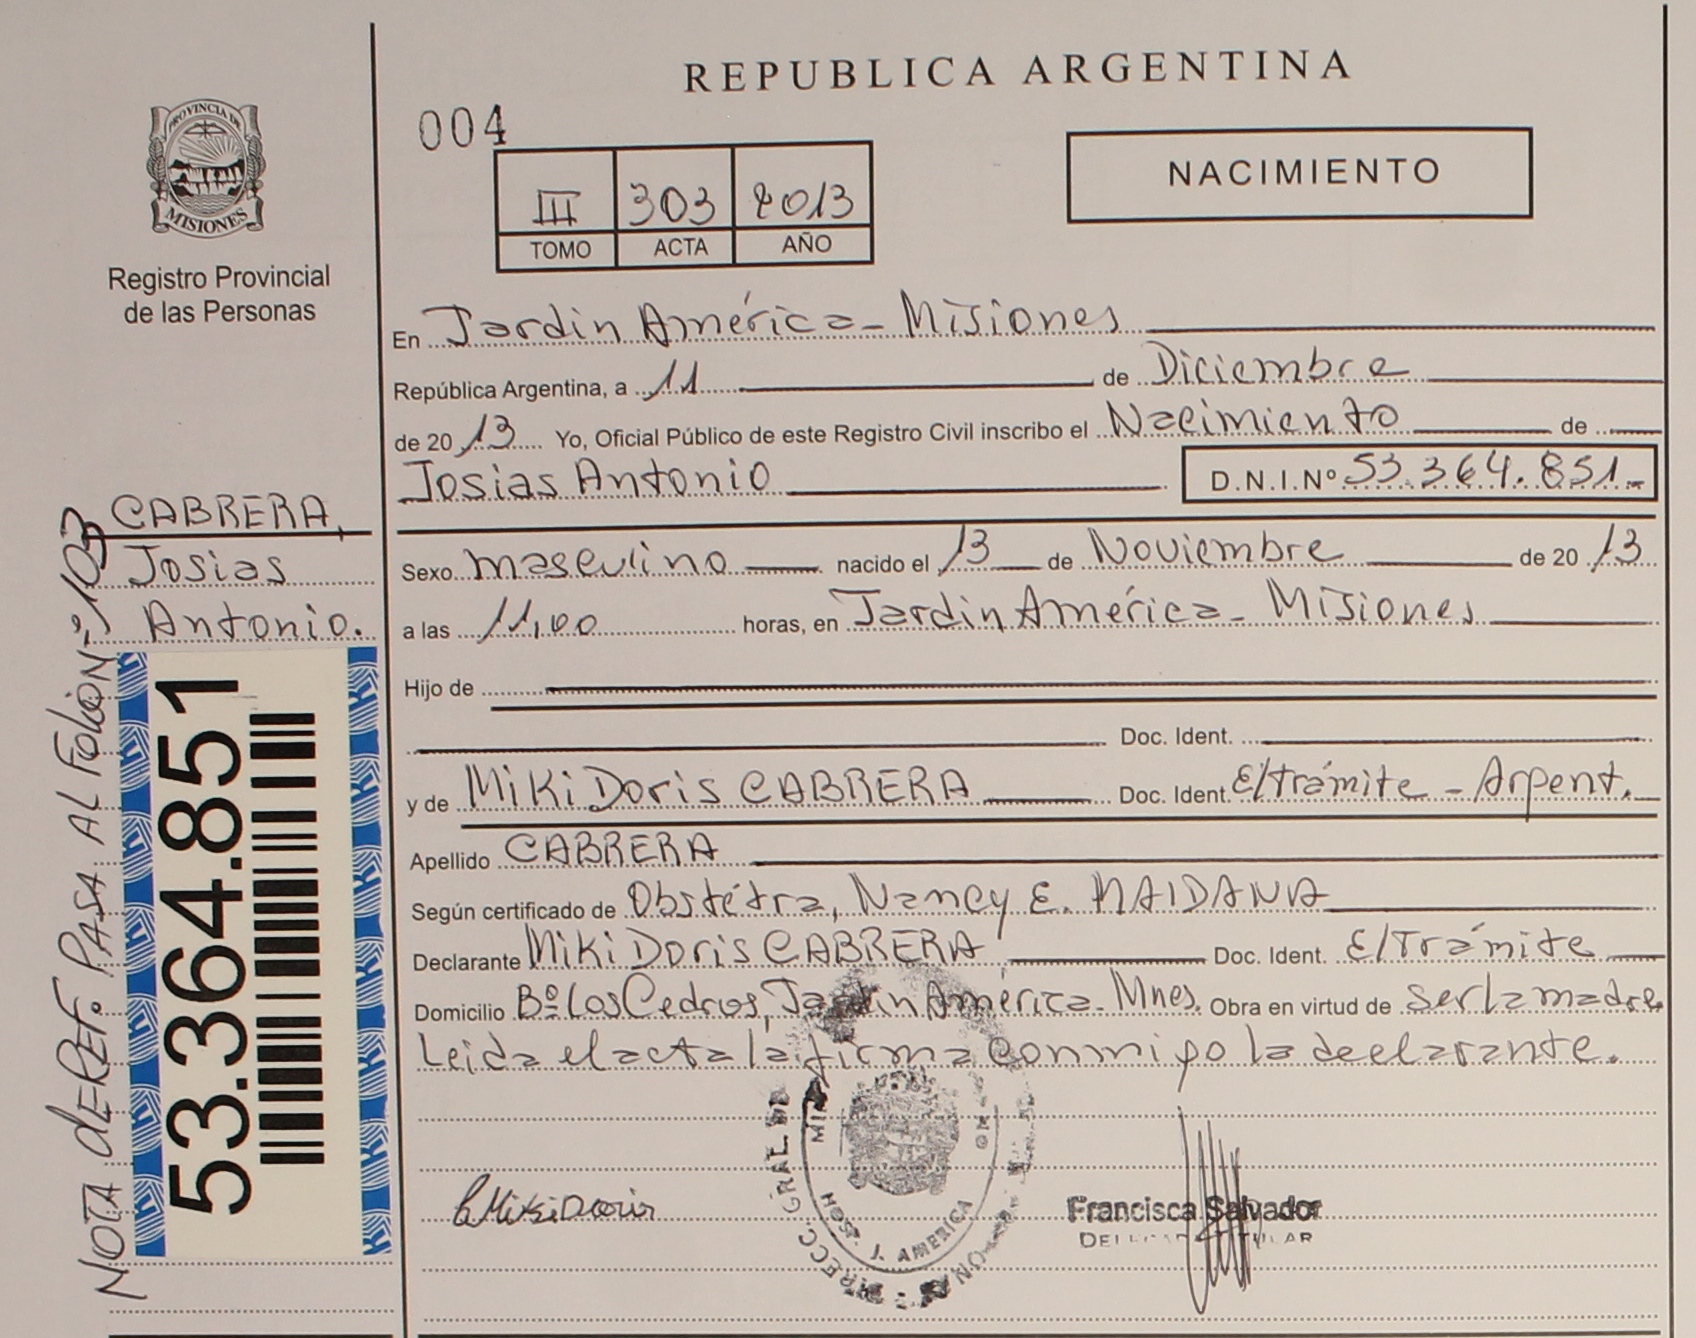 REPUBLICA ARGENTINA
004
III 303 2013
TOMO ACTA AÑO
NACIMIENTO
PROVINCIA DE
MISIONES
Registro Provincial
de las Personas
En Jardin América - Misiones
República Argentina, a 11 de Diciembre
de 2013 Yo, Oficial Público de este Registro Civil inscribo el Nacimiento de
Josias Antonio D.N.I.Nº 53.364.851.-
CABRERA,
Josias
Antonio.
Sexo masculino nacido el 13 de Noviembre de 2013
a las 11,00 horas, en Jardin América - Misiones
Hijo de
Doc. Ident.
y de Miki Doris CABRERA Doc. Ident. E/trámite - Argent.
Apellido CABRERA
Según certificado de Obstétra, Nancy E. MAIDANA
Declarante Miki Doris CABRERA Doc. Ident. E/Trámite
Domicilio Bº Los Cedros, Jardin América - Mnes. Obra en virtud de ser la madre.
Leida el acta la firma conmigo la declarante.
NOTA de REF. PASA AL Folio Nº 103
53.364.851
Miki Doris
DIRECC. GRAL DE
HOSP. J. AMERICA
Francisca Salvador
TITULAR